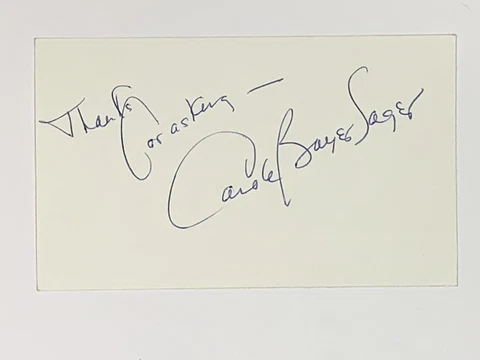 Thanks
for asking —
Carole Bayer Sager